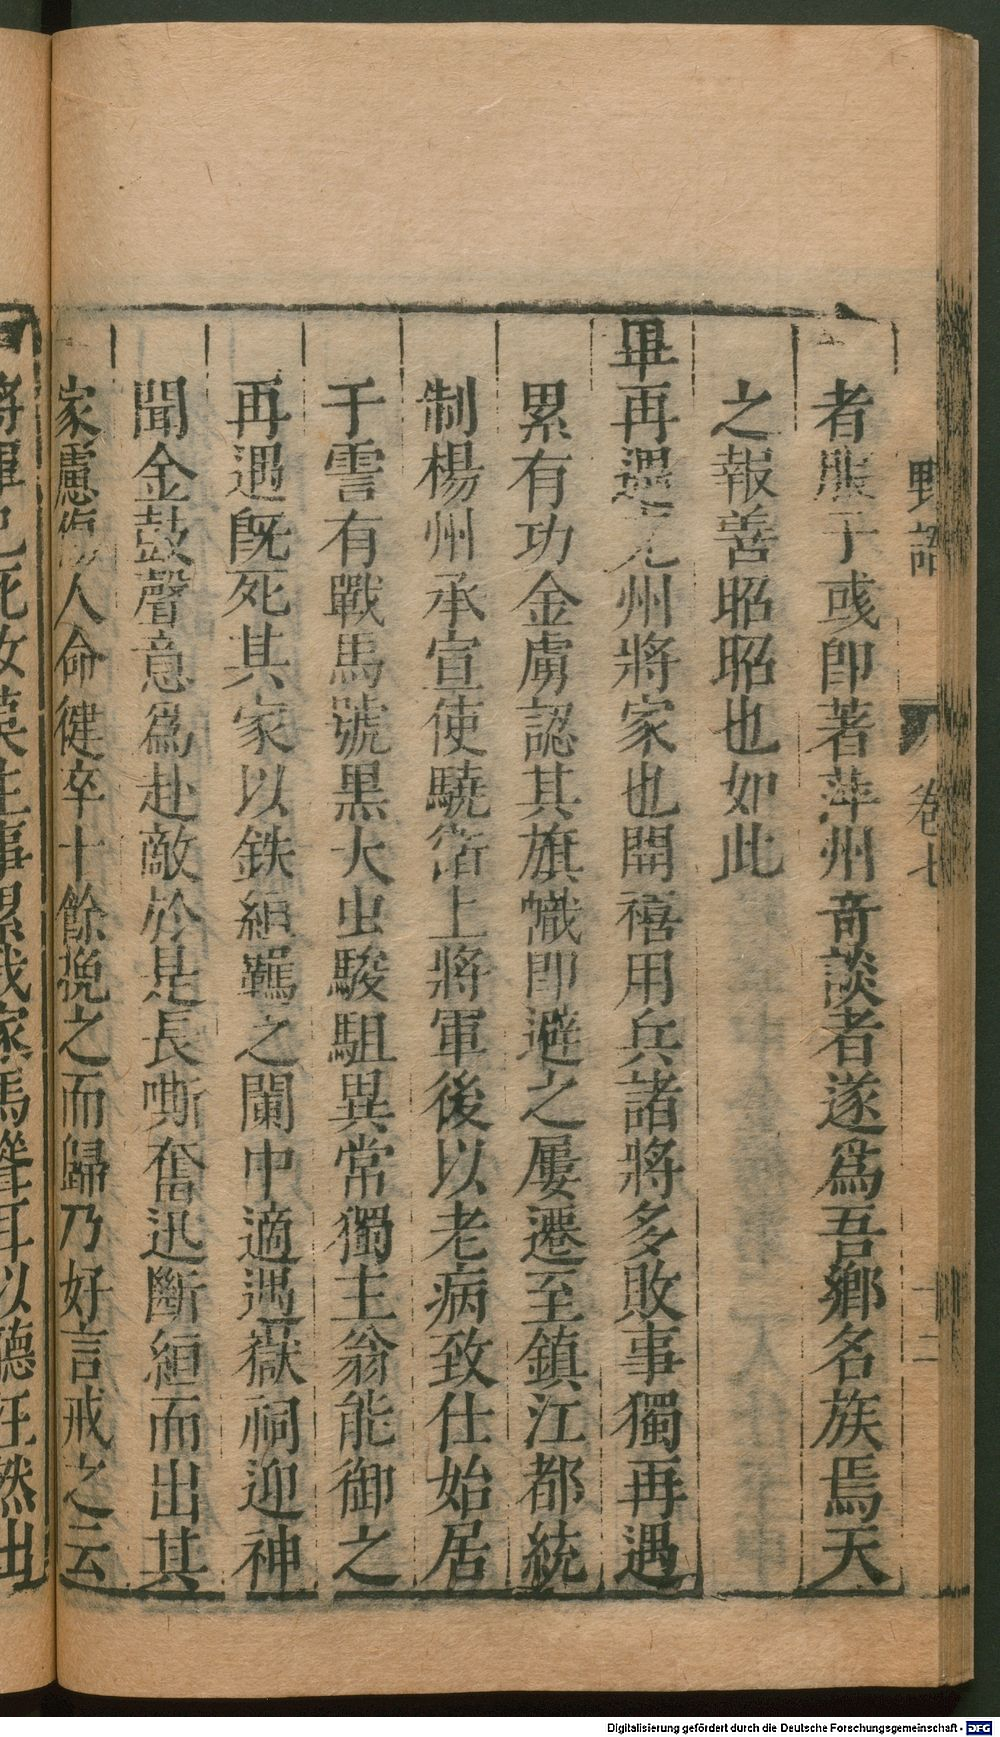 野語 卷七 十二
者服于彧即著萍州竒談者遂爲吾鄉名族焉天
之報善昭昭也如此
畢再遇兖州將家也開禧用兵諸將多敗事獨再遇
累有功金虜認其旗幟即避之屢遷至鎮江都統
制楊州承宣使驍衛上將軍後以老病致仕始居
于霅有戰馬號黒大虫駿駔異常獨主翁能御之
再遇既死其家以鉄絙羈之闌中適遇嶽祠迎神
聞金鼓聲意爲赴敵於是長嘶奮迅斷絙而出其
家慮傷人命健卒十餘挽之而歸乃好言戒之云
將軍已死汝莫生事累我家馬聳耳以聽汪然出
Digitalisierung gefördert durch die Deutsche Forschungsgemeinschaft - DFG